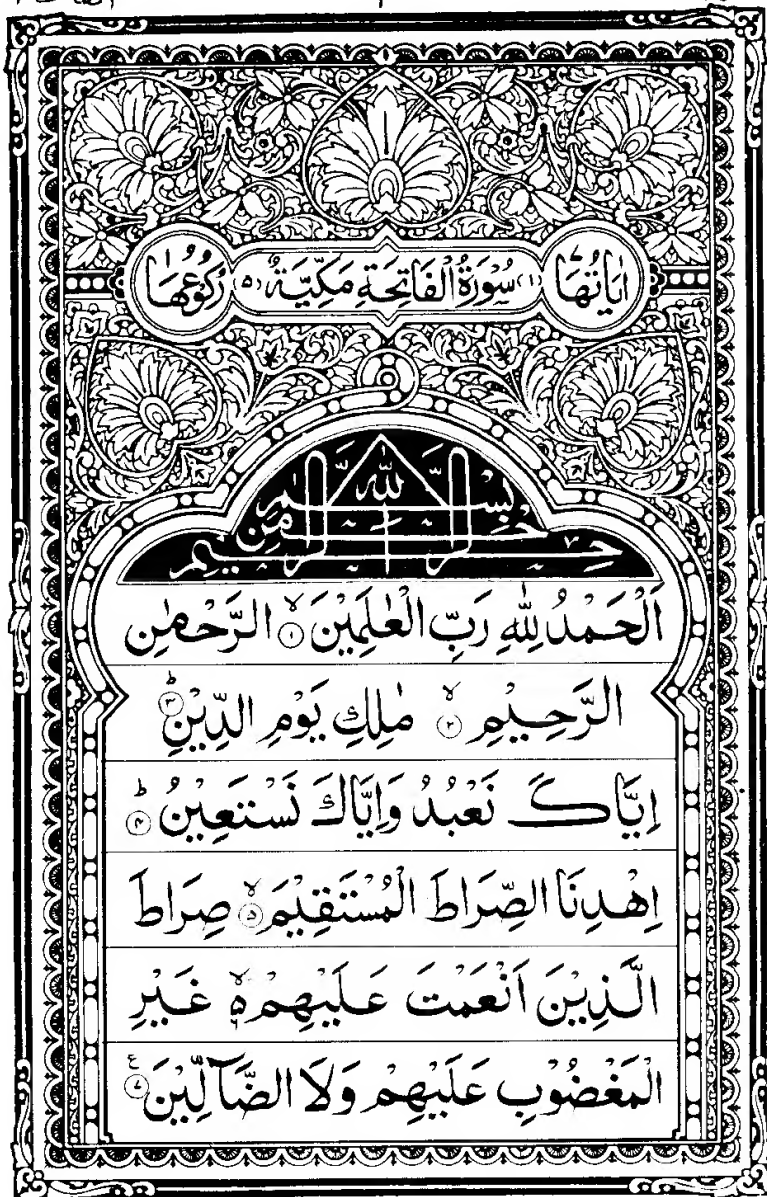 اٰيَاتُهَا ٧ (١) سُوْرَةُ الْفَاتِحَةِ مَكِّيَّةٌ (٥) رُكُوْعُهَا ١
بِسْمِ اللّٰهِ الرَّحْمٰنِ الرَّحِيْمِ
اَلْحَمْدُ لِلّٰهِ رَبِّ الْعٰلَمِيْنَ ۙ﴿۱﴾ الرَّحْمٰنِ
الرَّحِيْمِ ۙ﴿۲﴾ مٰلِكِ يَوْمِ الدِّيْنِ ؕ﴿۳﴾
اِيَّاكَ نَعْبُدُ وَاِيَّاكَ نَسْتَعِيْنُ ؕ﴿۴﴾
اِهْدِنَا الصِّرَاطَ الْمُسْتَقِيْمَ ۙ﴿۵﴾ صِرَاطَ
الَّذِيْنَ اَنْعَمْتَ عَلَيْهِمْ ۙ۬ غَيْرِ
الْمَغْضُوْبِ عَلَيْهِمْ وَلَا الضَّآلِّيْنَ ﴿۷﴾ ع